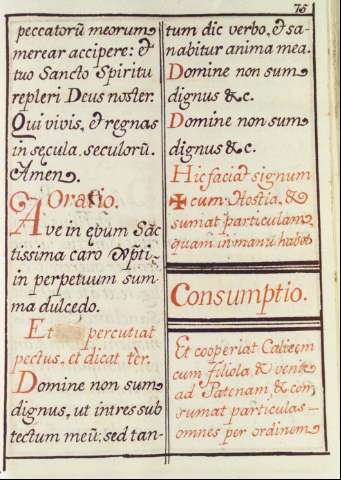 75
peccatorū meorum
merear accipere: &
tuo Sancto Spiritu
repleri Deus noster.
Qui vivis, & regnas
in sęcula. seculorū.
Amen.
Oratio.
Ave in ęvum Sāc
tissima caro Xp̄ti,
in perpetuum sum-
ma dulcedo.
Et percutiat
pectus, et dicat ter.
Domine non sum
dignus, ut intres sub
tectum meū; sed tan-
tum dic verbo, & sa-
nabitur anima mea.
Domine non sum
dignus &c.
Domine non sum
dignus &c.
Hic faciat signum
✠ cum Hostia, &
sumat particulam
quam in manū habet
Consumptio.
Et cooperiat Calicem
cum filiola & veniat
ad Patenam, & con
sumat particulas
omnes per ordinem